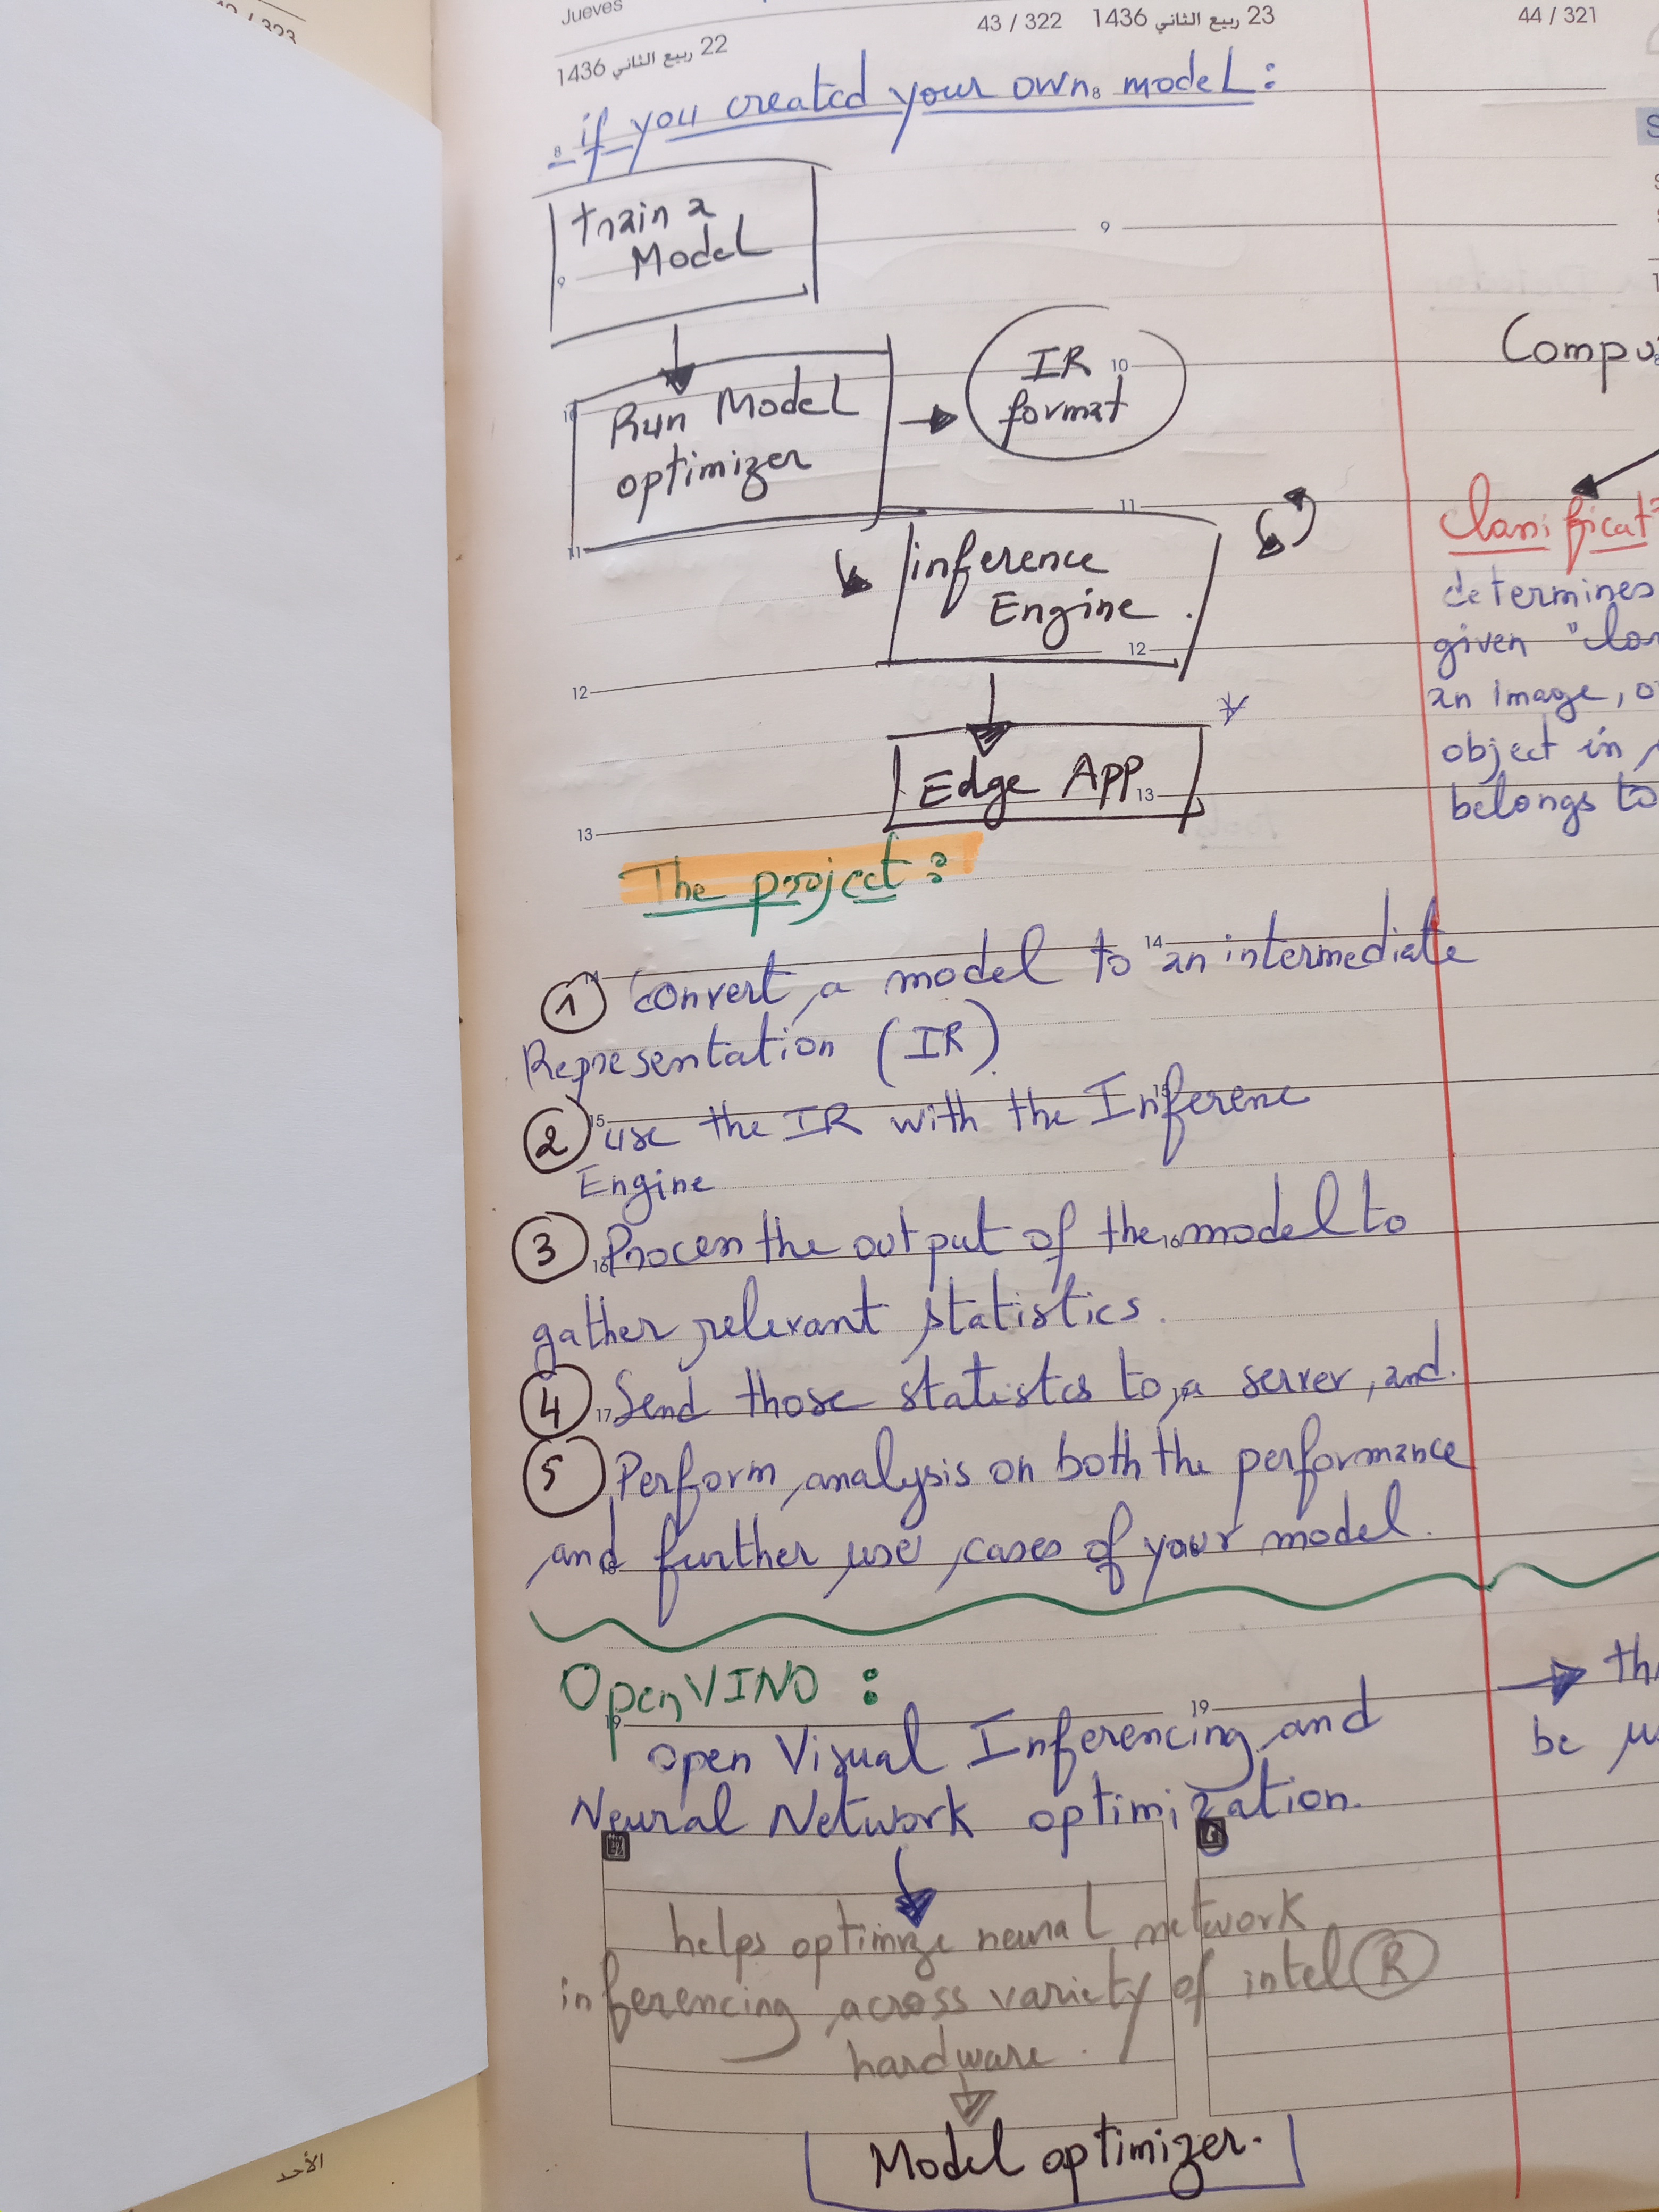 Jueves
22 ربيع الثاني 1436
43 / 322 23 ربيع الثاني 1436
44 / 321
if you created your own model:
train a
Model
Run Model
optimizer
IR
format
inference
Engine
Edge App
The project:
1 Convert a model to an intermediate
Representation (IR)
2 use the IR with the Inferenc
Engine
3 Process the output of the model to
gather relevant statistics.
4 Send those statistcs to a server, and
5 Perform analysis on both the performance
and further use cases of your model.
OpenVINO :
open Visual Inferencing and
Neural Network optimization.
helps optimize neural network
inferencing across variety of intel ®
hardware.
Model optimizer.
Compu
Classificat
determines
given "clas
an image, o
object in
belongs to
th
be u
الأحد
8
8
9
9
10
10
11
11
12
12
13
13
14
15
16
16
17
18
19
19